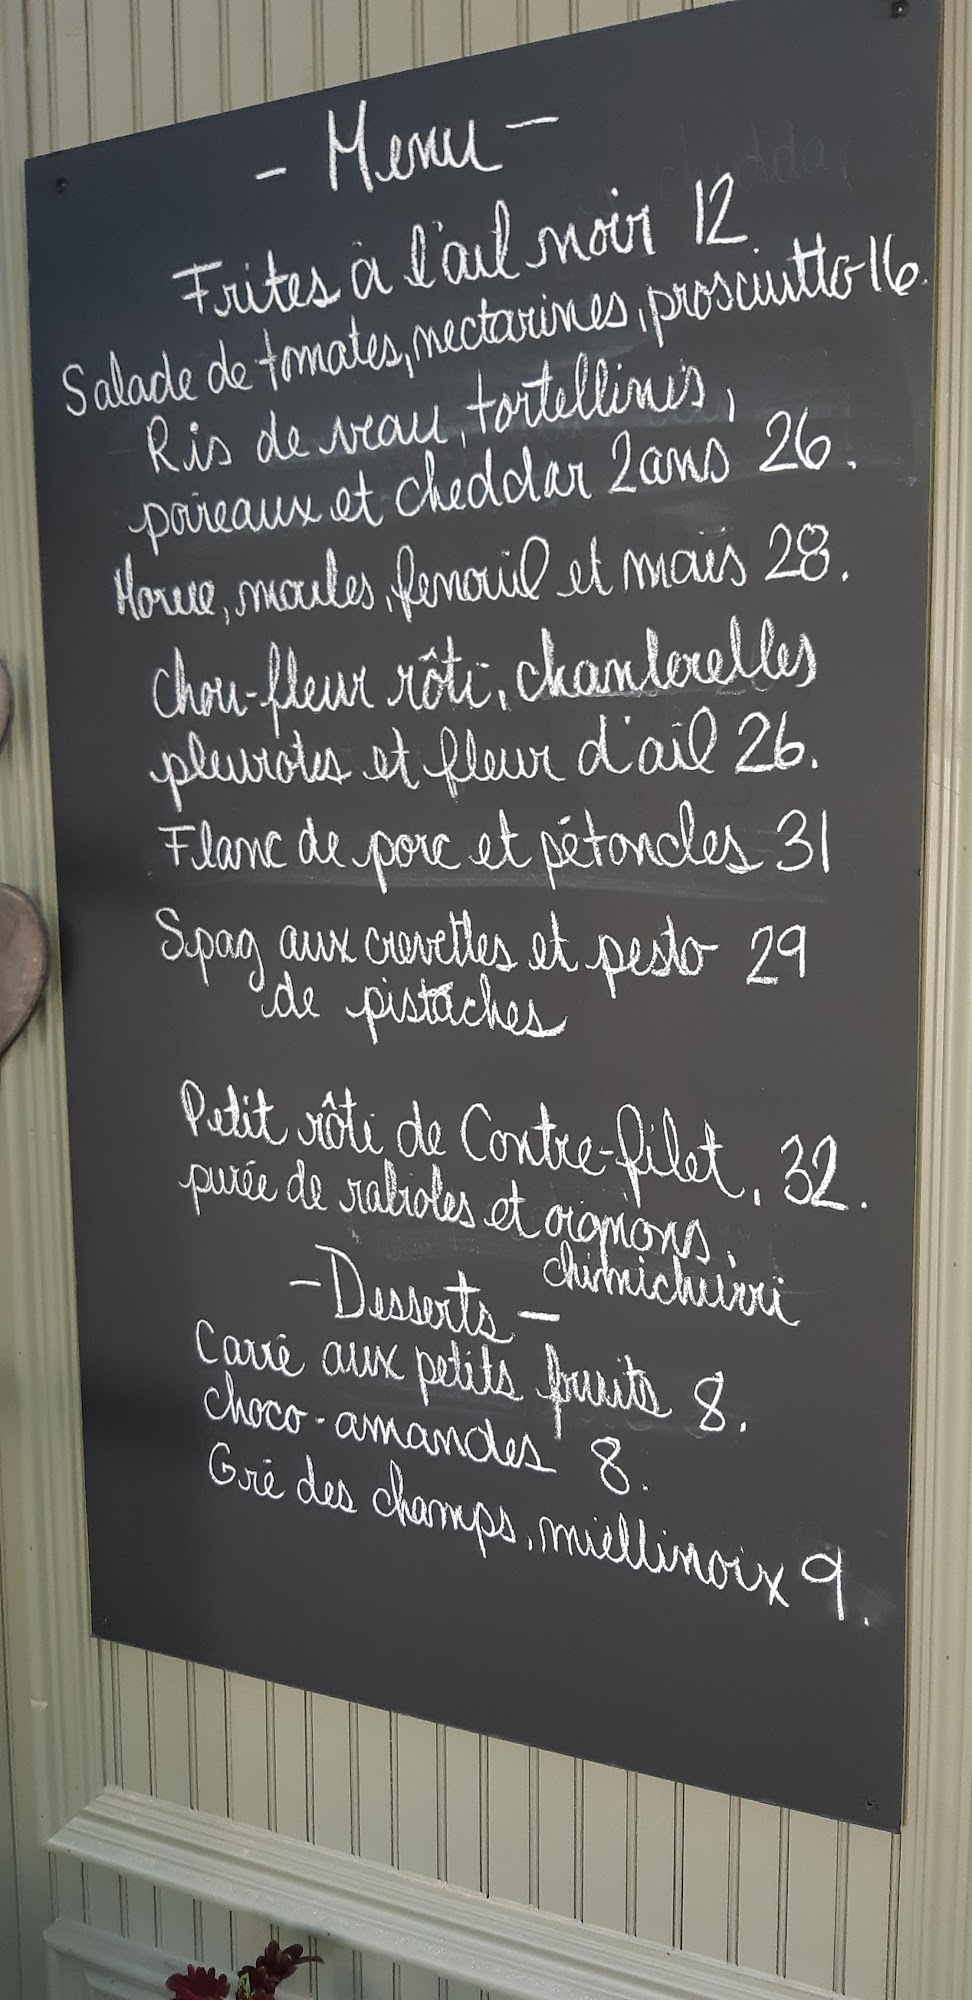 - Menu -
Frites à l'ail noir 12
Salade de tomates, nectarines, prosciutto 16.
Ris de veau, tortellinis,
poireaux et cheddar 2ans 26.
Morue, moules, fenouil et maïs 28.
Chou-fleur rôti, chanterelles
pleurotes et fleur d'ail 26.
Flanc de porc et pétoncles 31
Spag aux crevettes et pesto 29
de pistaches
Petit rôti de Contre-filet, 32.
purée de rabioles et oignons,
chimichurri
- Desserts -
Carré aux petits fruits 8.
choco-amandes 8.
Gré des champs, miellinoix 9.